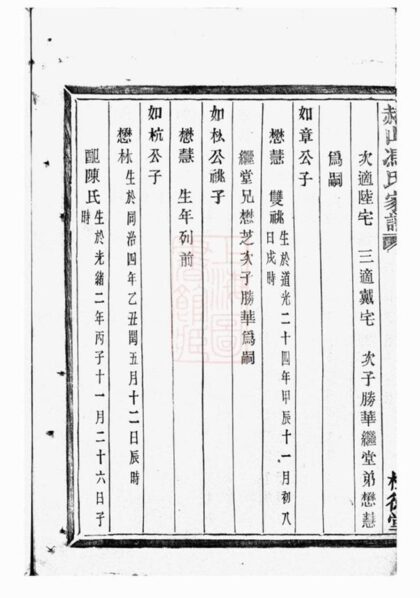 赫山馮氏家譜
次適陸宅　三適戴宅　次子勝華繼堂弟懋慧
爲嗣
如章公子
懋慧　雙祧生於道光二十四年甲辰十一月初八日戌時
繼堂兄懋芝次子勝華爲嗣
如松公祧子
懋慧　生年列前
如杭公子
懋林生於同治四年乙丑閏五月十二日辰時
配陳氏生於光緒二年丙子十一月二十六日子時